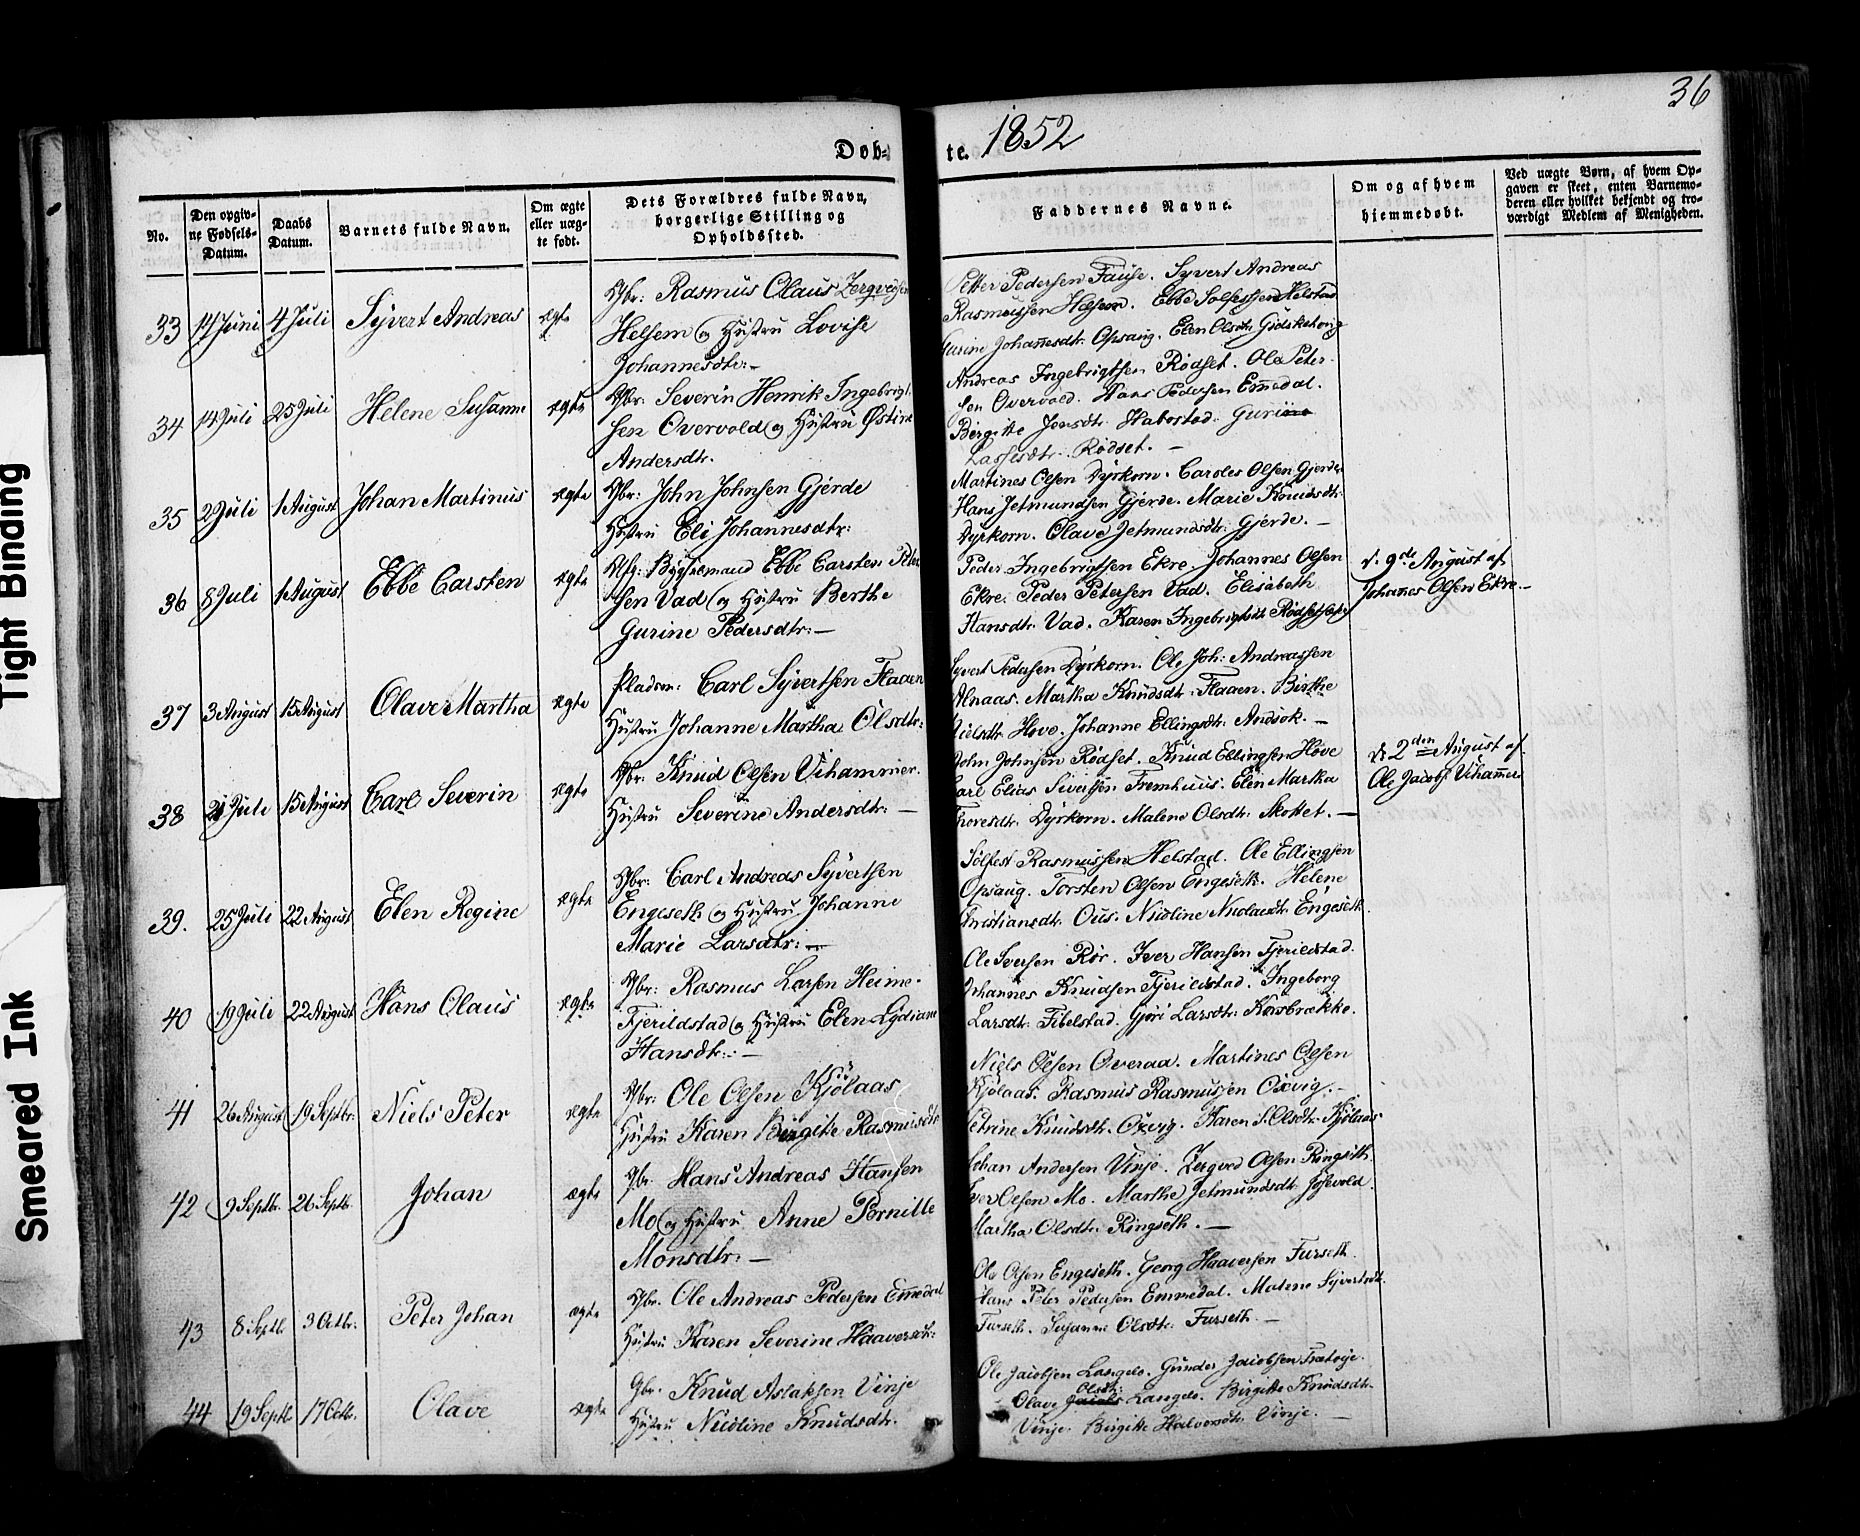 36
Døb-
te. 1852
No.
Den opgiv-
ne Fødsels-
Datum.
Daabs
Datum.
Barnets fulde Navn.
Om ægte
eller uæg-
te født.
Dets Forældres fulde Navn,
borgerlige Stilling og
Opholdssted.
Faddernes Navne.
Om og af hvem
hjemmedøbt.
Ved uægte Børn, af hvem Op-
gaven er skeet, enten Barnemo-
deren eller hvilket bekjendt og tro-
værdigt Medlem af Menigheden.
33 14 Juni 4 Juli Syvert Andreas ægte
Gbr: Rasmus Claus
Helsem og Hustru Lovise
Johannesdtr:
Petter Pedersen Fause. Syvert Andreas
Rasmussen Helsem. Ebbe Solfestsen Helstad
Johannesdtr. Opsaug. Elen Olsdtr.
34 14 Juli 25 Juli Helene Susanne ægte
Gbr: Severin Henrik Ingebrigt-
sen Overvold og Hustru Østine
Andersdtr.
Andreas Ingebrigtsen Rødset. Ole Peter-
sen Overvold. Hans Pedersen Emedal.
Birgitte Jensdtr. Habostad. Guri
Lassesdtr. Rødset. —
35 2 Juli 1 August Johan Martinus ægte
Gbr: John Johnsen Gjerde
Hustru Eli Johannesdtr:
Martines Olsen Dyrkorn. Caroles Olsen Gjerde
Hans Jetmundsen Gjerde. Marie Knudsdtr.
Dyrkorn. Olave Jetmundsdtr. Gjerde. —
36 8 Juli 1 August Ebbe Carsten ægte
Ebbe Carsten Peter
sen Vad og Hustru Berthe
Gurine Pedersdtr: —
Peder Ingebrigtsen Ekre. Johannes Olsen
Ekre. Peder Petersen Vad. Elisabeth
Hansdtr. Vad. Karen Ingebrigtsdtr.
d. 9de August af
Johanes Olsen Ekre. —
37 3 August 15 August Olave Martha ægte
Pladsm: Carl Syvertsen Flaaen
Hustru Johanne Martha Olsdtr:
Syvert Pedersen Dyrkorn. Ole Joh: Andreassen
Alnaas. Martha Knudsdtr. Flaaen. Birthe
Nielsdtr. Hove. Johanne Ellingsdtr. Andsok. —
38 21 Juli 15 August Carl Severin ægte
Gbr: Knud Olsen Vihammer.
Hustru Severine Andersdtr: —
John Johnsen Rødset. Knud Ellingsen Hove
Carl Elias Sivertsen Fremhuus. Elen Martha
Thoresdtr. Dyrkorn. Malene Olsdtr. Skottet. —
d. 2den August af
Ole Jacobs. Vihamer
39. 25 Juli 22 August Elen Regine ægte
Gbr: Carl Andreas Syvertsen
Engeseth og Hustru Johanne
Marie Larsdtr: —
Solfest Rasmussen Helstad. Ole Ellingsen
Opsaug. Torsten Olsen Engeseth. Helene
Christiansdtr. Ous. Nicoline Nicolaisdtr. Engeseth.
40 19 Juli 22 August Hans Olaus ægte
Gbr: Rasmus Larsen Heime-
Fjerildstad og Hustru Elen Lydiane
Hansdtr: —
Ole Iversen Rør. Iver Hansen Fjerildstad.
Johannes Knudsen Fjerildstad. Ingeborg
Larsdtr. Fibelstad. Gjøri Larsdtr: Korsbrække.
41 26 August 19 Septbr. Niels Peter ægte
Gbr: Ole Olsen Kjölaas
Hustru Karen Birgitte Rasmusdtr
Niels Olsen Overaa. Martines Olsen
Kjölaas. Rasmus Rasmussen Oxvig. —
Petrine Knudsdtr. Oxvig. Karen S. Olsdtr. Kjölaas.
42 9 Septbr. 26 Septbr. Johan ægte
Gbr. Hans Andreas Hansen
Mo og Hustru Anne Pernille
Monsdtr: —
Johan Andersen Vinje. Olsen Ringseth.
Iver Olsen Mo. Marthe Jetmundsdtr.
Martha Olsdtr. Ringseth. —
43 8 Septbr 3 Octbr: Peter Johan ægte
Gbr. Ole Andreas Pedersen Emedal
Hustru Karen Severine Haaversdtr:
Ole Olsen Engeseth. Georg Haaversen Furseth.
Hans Peter Pedersen Emmedal. Malene Syvertsdtr.
Furseth. Susanne Olsdtr. Furseth. —
44 19 Septb 17 Octb. Olave ægte
Gbr. Knud Aslaksen Vinje
Hustru Nicoline Knudsdtr.
Ole Jacobsen Langelo. Gunder Jacobsen
Olsdtr:
Olave Jacobs Langelo. Birgitte Knudsdtr.
Vinje. Birgitte Halvorsdtr. Vinje. —
Tight Binding
Smeared Ink